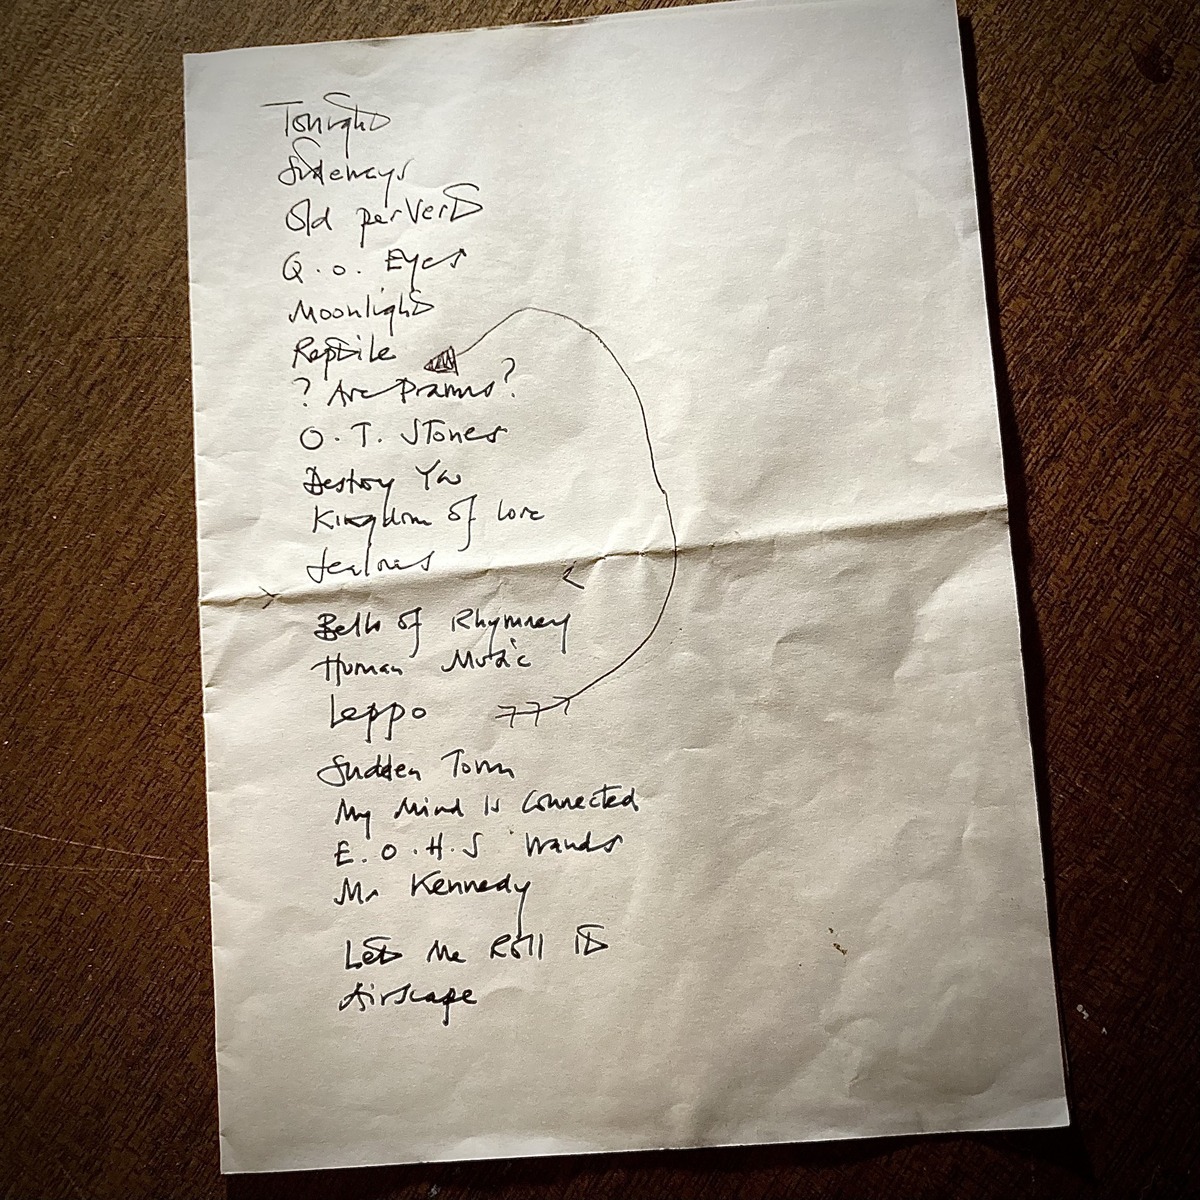 Tonight
Sideways
Old pervert
Q.o. Eyes
Moonlight
Reptile
? Are Prawns?
O.T. Stones
Destroy You
Kingdom of Love
Jealous
Bells of Rhymney
Human Music
Leppo
Sudden Town
My Mind Is Connected
E.O.H.S Wands
Mr Kennedy
Let Me Roll It
Airscape